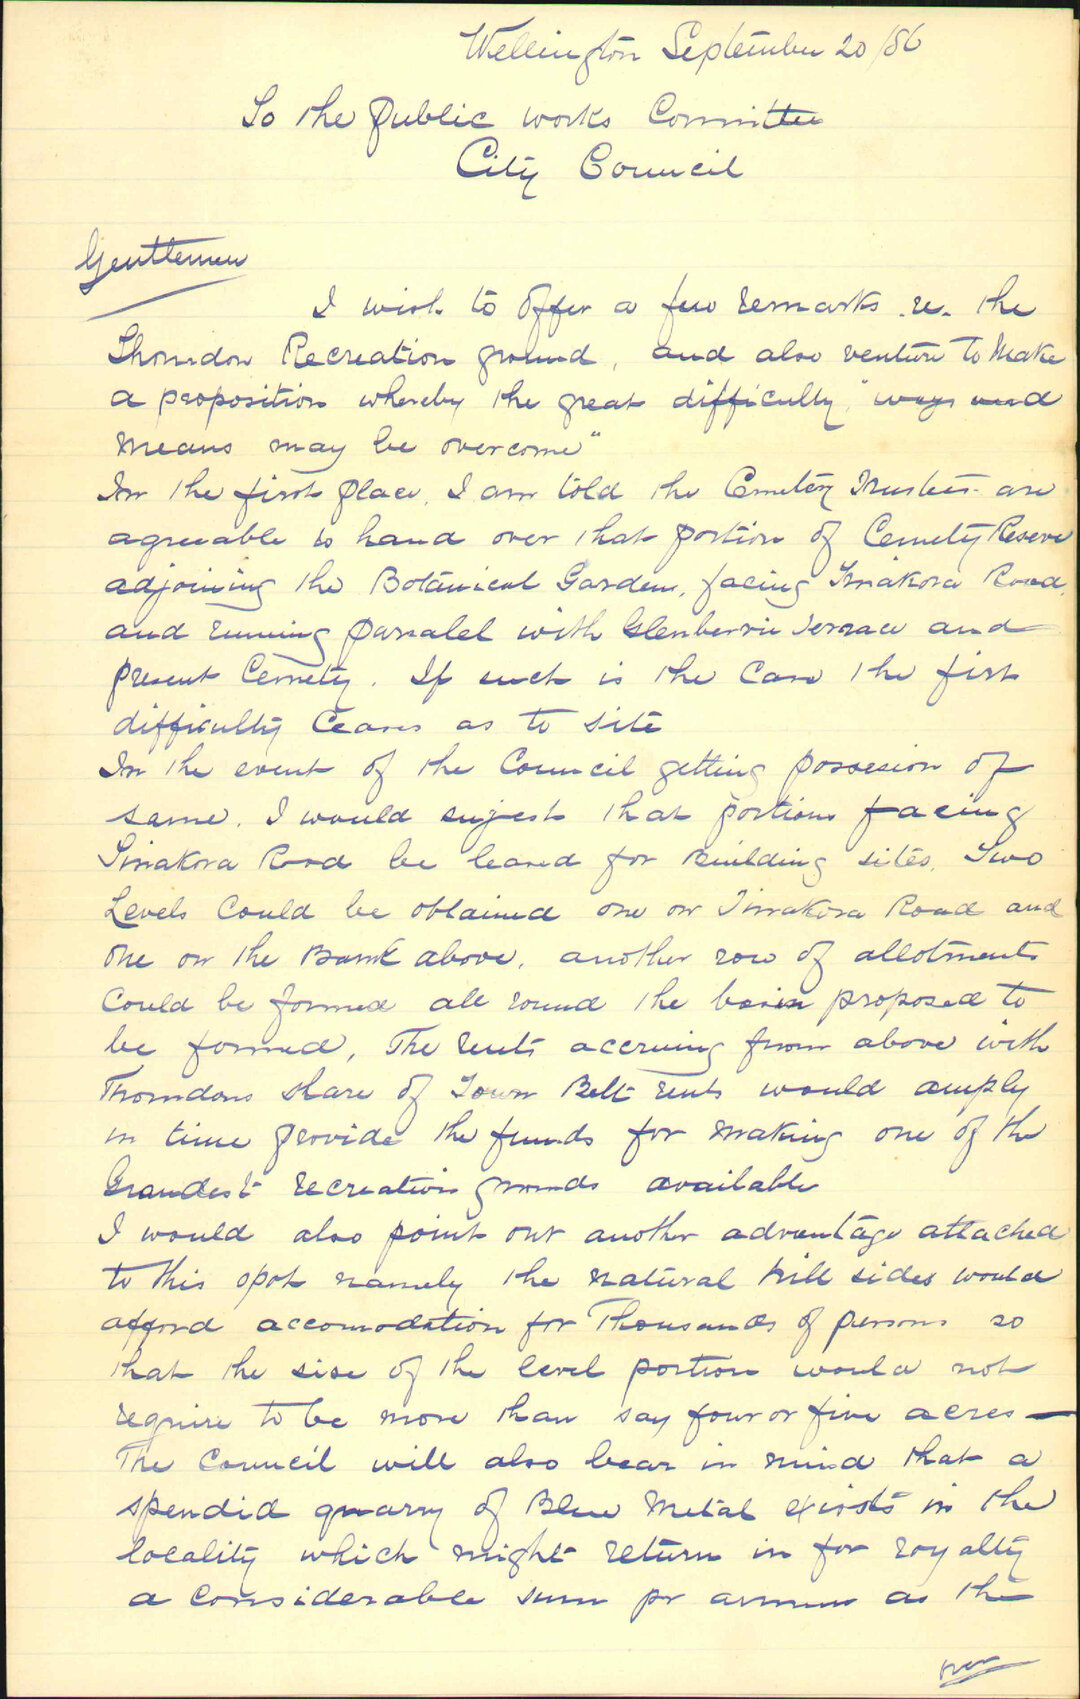 Wellington September 20/86
To the public works Committee
City Council
Gentlemen
I wish to offer a few remarks re. the
Thorndon Recreation ground, and also venture to Make
a proposition whereby the great difficulty, "ways and
means may be overcome"
In the first place, I am told the Cemetery Trustees are
agreeable to hand over that portion of Cemety Reserve
adjoining the Botanical Gardens, facing Tinakora Road,
and running parralel with Glenbervie Terrace and
present Cemety. If such is the Case the first
difficulty Ceases as to site
In the event of the Council getting possesion of
same. I would sugest that portions facing
Tinakora Road be leased for Building sites. Two
Levels Could be obtained one on Tinnakora Road and
One on the Bank above, another row of allotments
Could be formed all round the basin proposed to
be formed, The rents accruing from above with
Thorndons share of Town Belt rents would amply
in time provide the funds for making one of the
Grandest recreation grounds available
I would also point out another advantage attached
to this spot namely the natural hill sides would
afford accomodation for Thousands of persons so
that the size of the level portion would not
require to be more than say four or five acres —
The Council will also bear in mind that a
spendid quarry of Blue Metal exists in the
locality which might return in for royalty
a Considerable sum pr annum as the
over